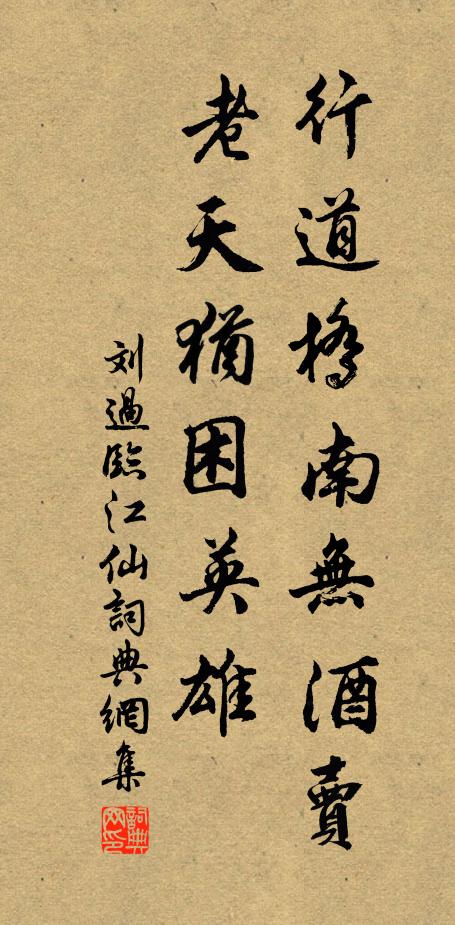 行道橋南無酒賣
老天猶困英雄
刘過臨江仙詞典網集
詞典网印